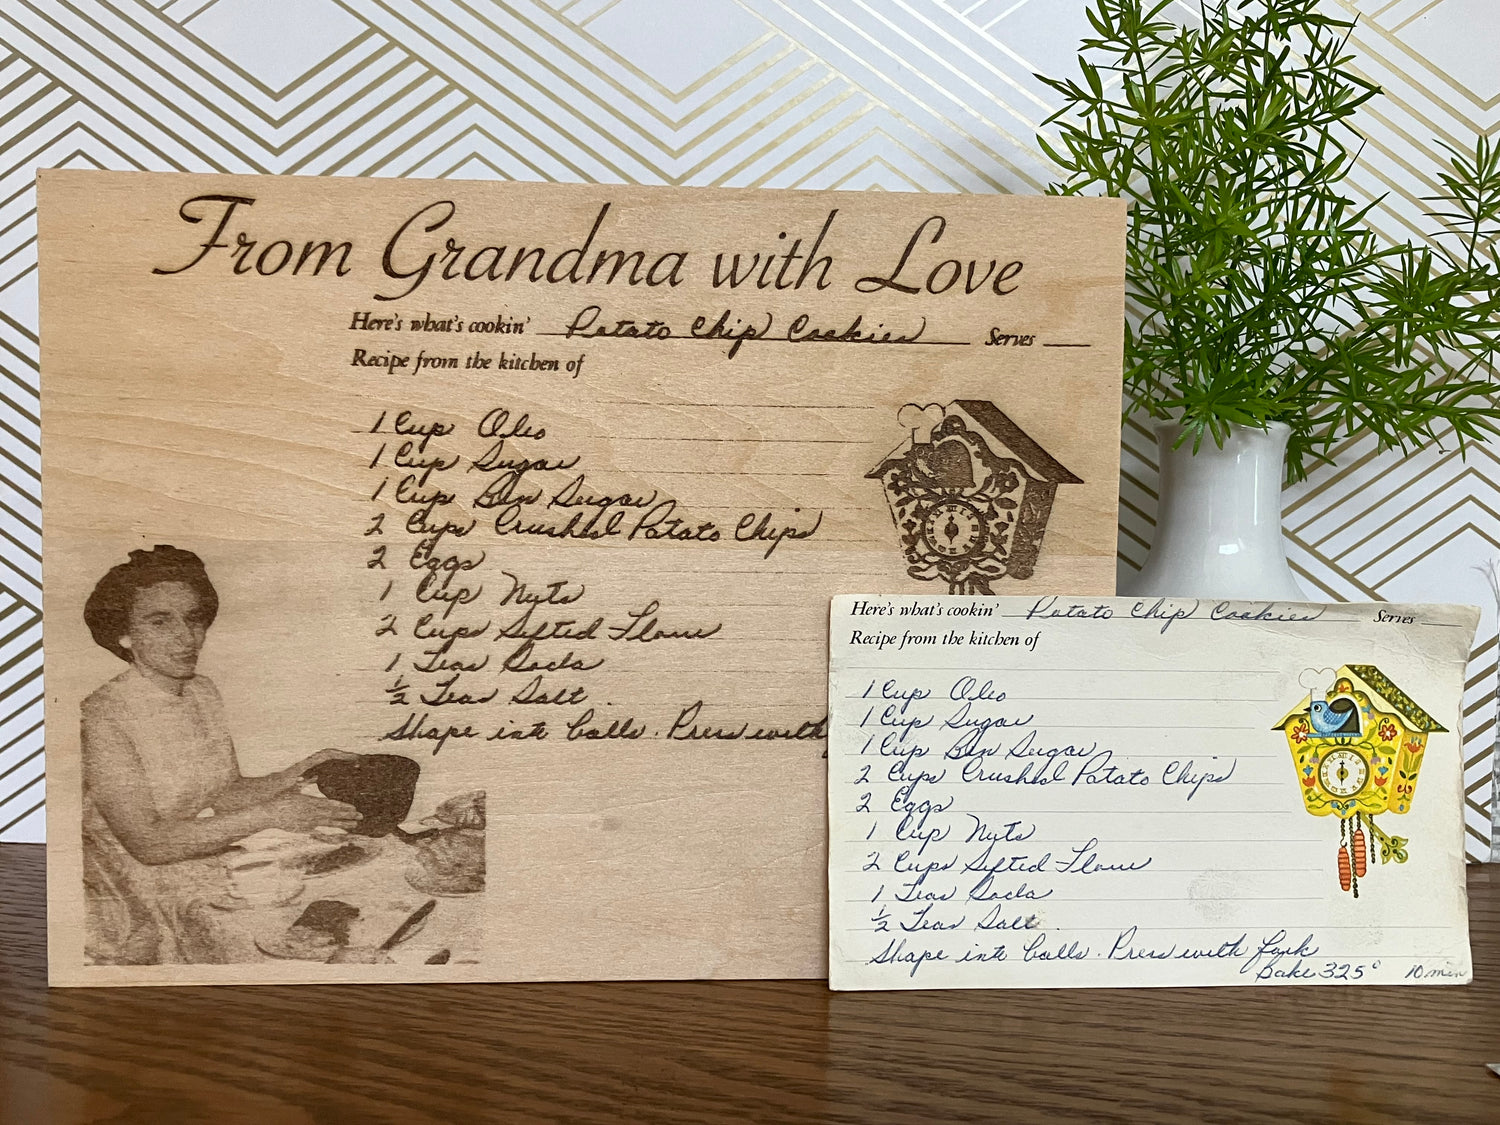 From Grandma with Love
Here's what's cookin' Potato Chip Cookies Serves
Recipe from the kitchen of
1 Cup Oleo
1 Cup Sugar
1 Cup Brn Sugar
2 Cups Crushed Potato Chips
2 Eggs
1 Cup Nuts
2 Cups Sifted Flour
1 Teas Soda
1/2 Teas Salt.
Shape into balls. Press with
Here's what's cookin' Potato Chip Cookies Serves
Recipe from the kitchen of
1 Cup Oleo
1 Cup Sugar
1 Cup Brn Sugar
2 Cups Crushed Potato Chips
2 Eggs
1 Cup Nuts
2 Cups Sifted Flour
1 Teas Soda
1/2 Teas Salt.
Shape into balls. Press with fork
Bake 325° 10 min